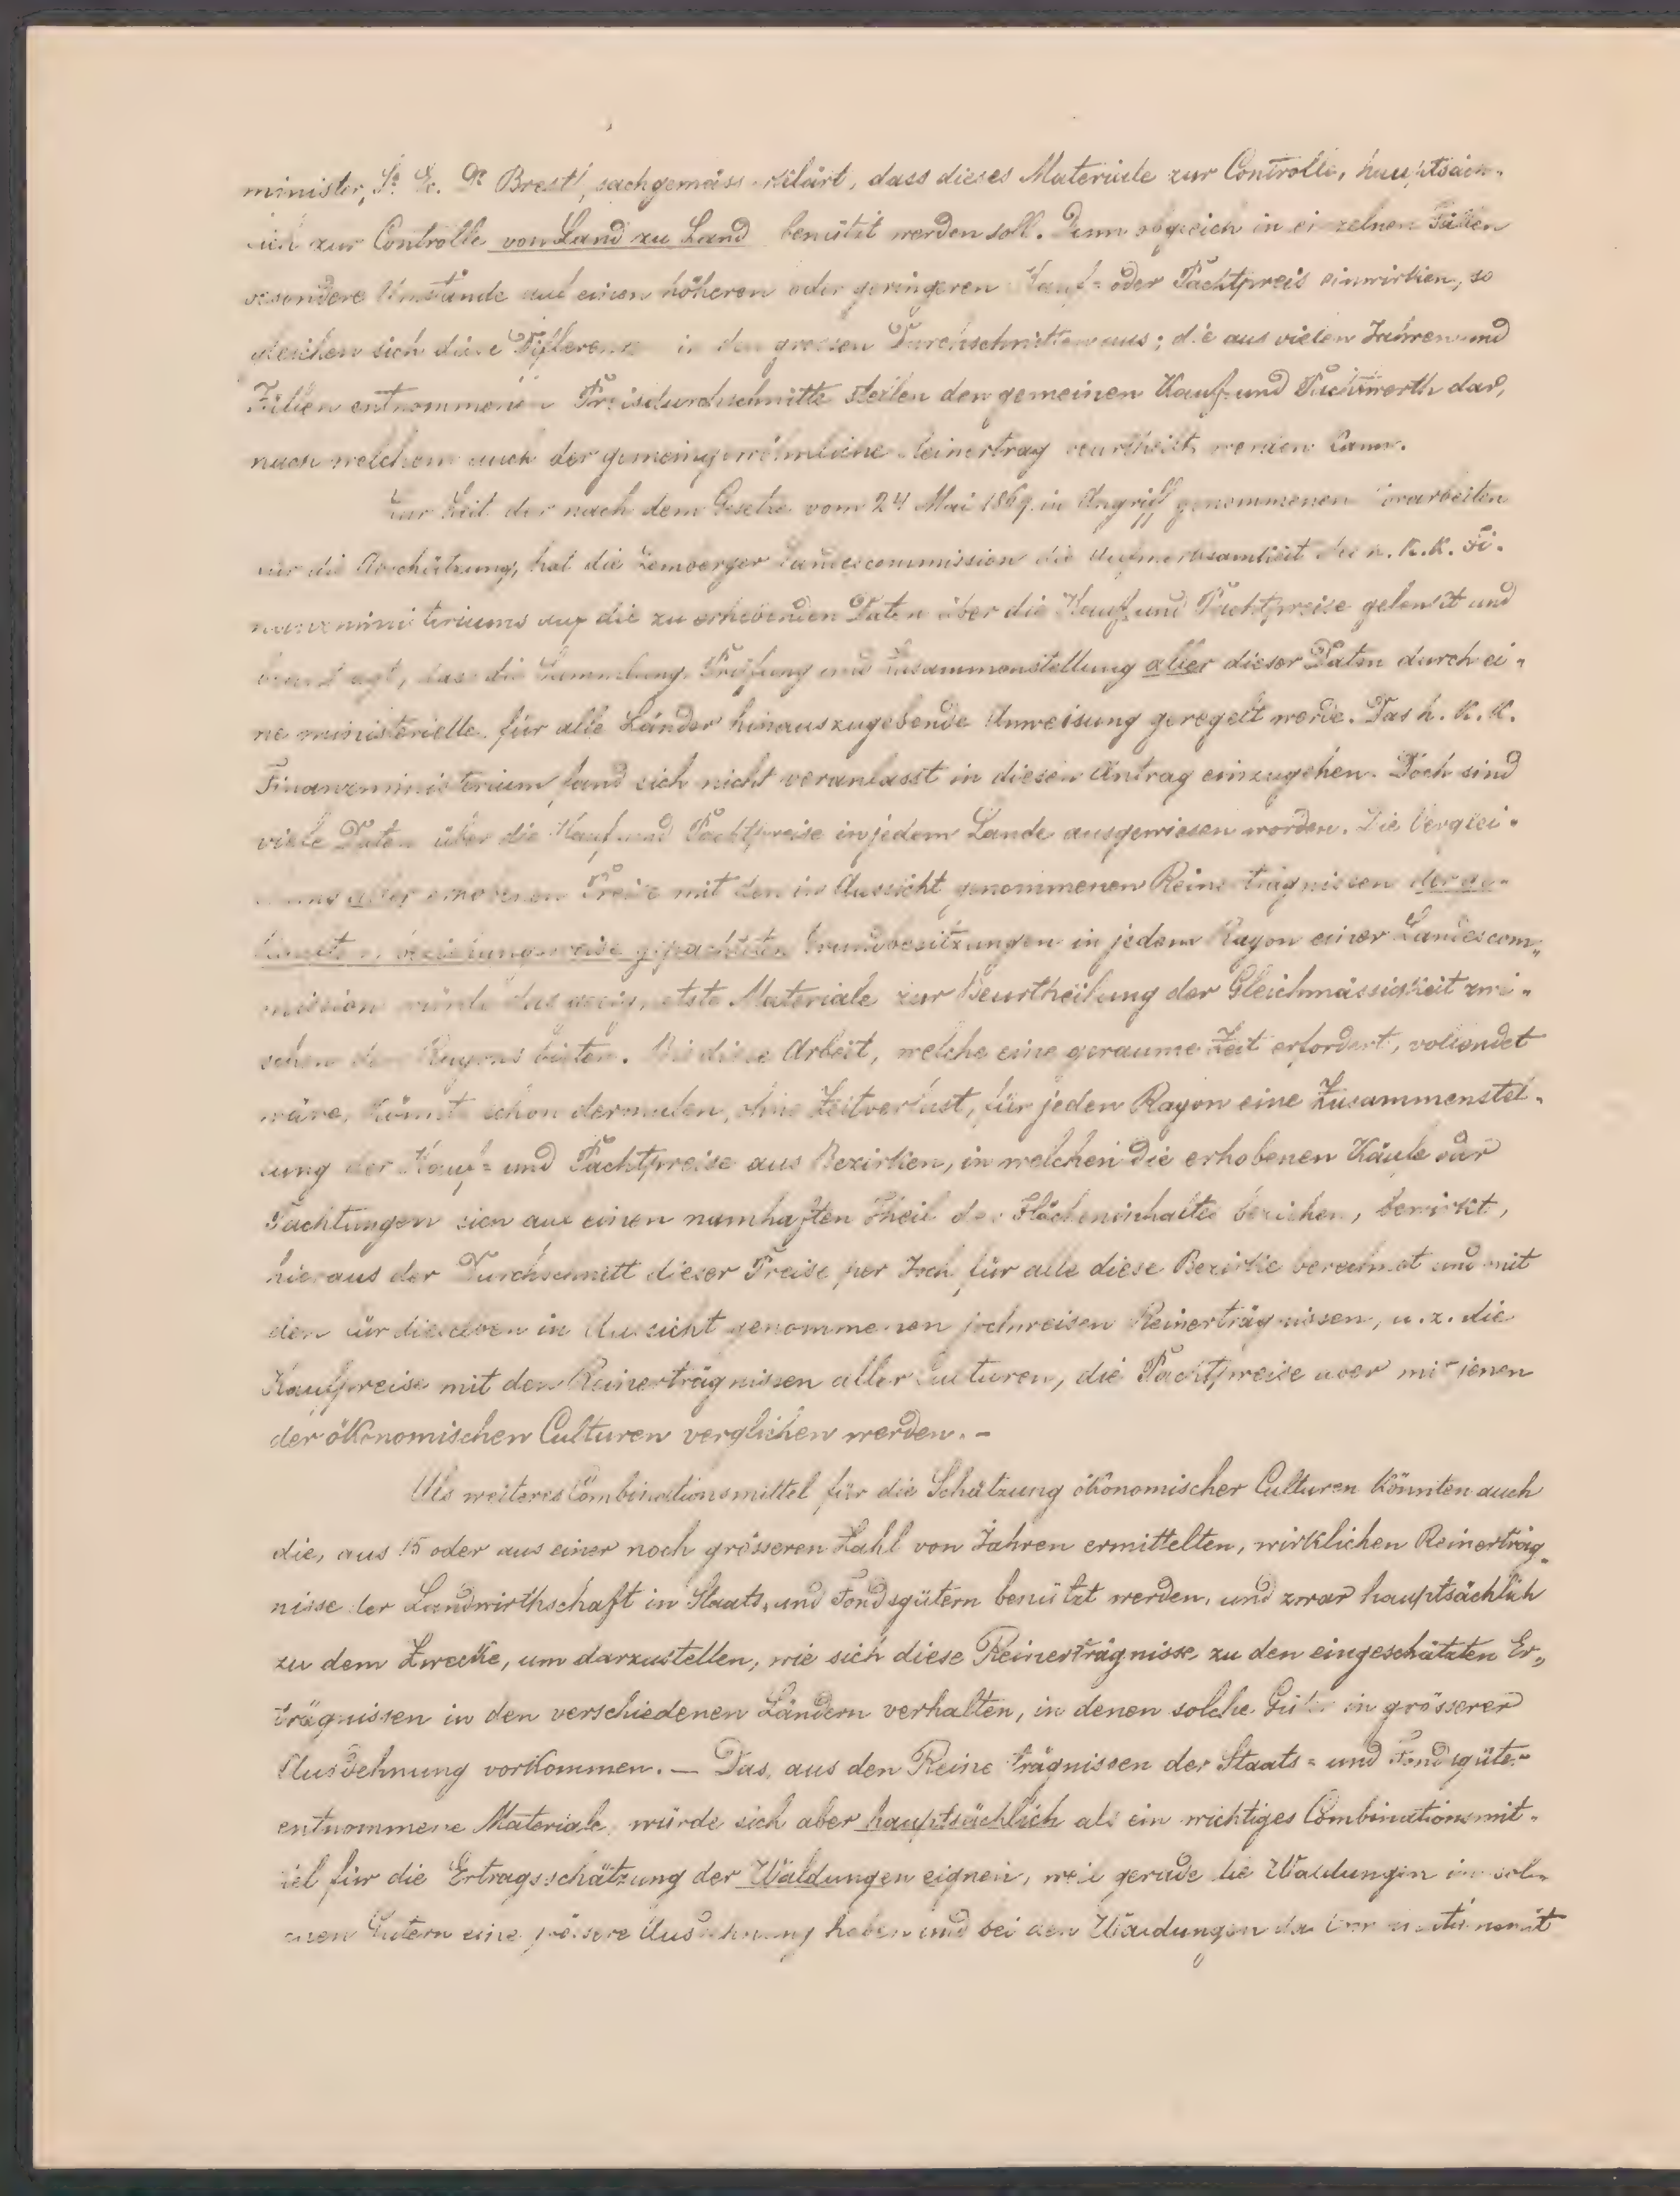 minister, Sr. Ex. Dr Brestl, sachgemäss erklärt, dass dieses Materiale zur Controlle, hauptsäch-
lich zur Controlle von Land zu Land benützt werden soll. Denn obgleich in einzelnen Fällen
besondere Umstände auf einen höheren oder geringeren Kauf= oder Pachtpreis einwirken, so
gleichen sich diese Differenzen in den grossen Durchschnitten aus; die aus vielen Jahren und
Fällen entnommenen Preisdurchschnitte stellen den gemeinen Kauf- und Pachtwerth dar,
nach welchem auch der gemeingewöhnliche Reinertrag beurtheilt werden kann.
Zur Zeit der nach dem Gesetze vom 24 Mai 1869 in Angriff genommenen Vorarbeiten
für die Abschätzung, hat die Lemberger Landescommission die Aufmerksamkeit des h. k. k. Fi-
nanzministeriums auf die zu erhebenden Daten über die Kauf- und Pachtpreise gelenkt und
beantragt, dass die Sammlung, Prüfung und Zusammenstellung aller dieser Daten durch ei-
ne ministerielle für alle Länder hinauszugebende Anweisung geregelt werde. Das h. k. k.
Finanzministerium fand sich nicht veranlasst in diesen Antrag einzugehen. Doch sind
viele Daten über die Kauf- und Pachtpreise in jedem Lande ausgewiesen worden. Die Verglei-
chung aller erhobenen Preise mit den in Aussicht genommenen Reinerträgnissen der ge-
kauften beziehungsweise gepachteten Grundbesitzungen in jedem Rayon einer Landescom-
mission würde das geeignetste Materiale zur Beurtheilung der Gleichmässigkeit zwi-
schen den Rayons bieten. Bis diese Arbeit, welche eine geraume Zeit erfordert, vollendet
wäre, könnte schon dermalen, ohne Zeitverlust, für jeden Rayon eine Zusammenstel-
lung der Kauf= und Pachtpreise aus Bezirken, in welchen die erhobenen Käufe oder
Pachtungen sich auf einen namhaften Theil des Flächeninhaltes beziehen, bewirkt,
hieraus der Durchschnitt dieser Preise per Joch für alle diese Bezirke berechnet und mit
den für dieselben in Aussicht genommenen jochweisen Reinerträgnissen, u. z. die
Kaufpreise mit den Reinerträgnissen aller Culturen, die Pachtpreise aber mit jenen
der ökonomischen Culturen verglichen werden. -
Als weiteres Combinationsmittel für die Schätzung ökonomischer Culturen könnten auch
die, aus 15 oder aus einer noch grösseren Zahl von Jahren ermittelten, wirklichen Reinerträg-
nisse der Landwirthschaft in Staats- und Fondsgütern benützt werden, und zwar hauptsächlich
zu dem Zwecke, um darzustellen, wie sich diese Reinerträgnisse zu den eingeschätzten Er-
trägnissen in den verschiedenen Ländern verhalten, in denen solche Güter in grösserer
Ausdehnung vorkommen. — Das, aus den Reinerträgnissen der Staats= und Fondsgüter
entnommene Materiale, würde sich aber hauptsächlich als ein wichtiges Combinationsmit-
tel für die Ertragsschätzung der Waldungen eignen, weil gerade die Waldungen in sol-
chen Gütern eine grössere Ausdehnung haben und bei den Waldungen das